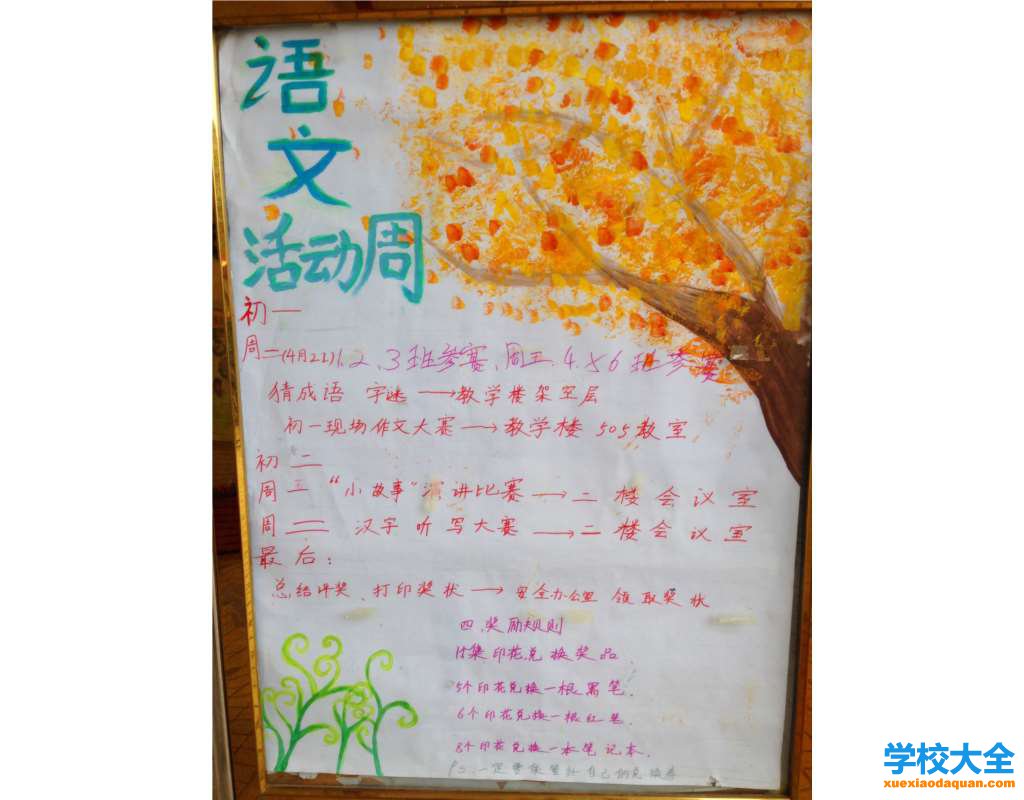 语
文
活动周
初一
周二(4月21)1、2、3班参赛、周五.4.5 6 班参赛
猜成语 字谜→教学楼架空层
初一现场作文大赛→教学楼 505教室
初 二
周一"小故事"演讲比赛→二楼会议室
周二 汉字听写大赛→二楼会议室
最后:
总结评奖、打印奖状→安全办公室 领取奖状
四、奖励规则
收集印花兑换奖品.
5个印花兑换一根黑笔.
6个印花兑换一根红笔.
8个印花兑换一本笔记本.
PS:一定要保管好自己的兑换券
学校大全
xuexiaodaquan.com